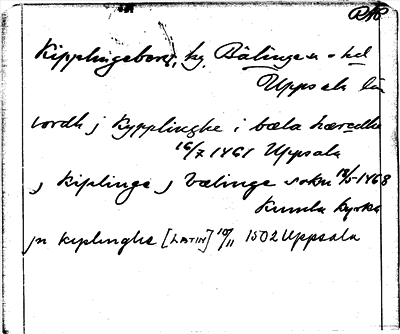 RAP
Kipplingeberg, by, Bälinge sn o hd
Uppsala län
j Kypplinghe i bæla hæredhe
16/7 1461 Uppsala
j Kiplinge j Bælinge sokn 12/5 1468
Kumla kyrka
jn kiplinghe [LATIN] 10/11 1502 Uppsala